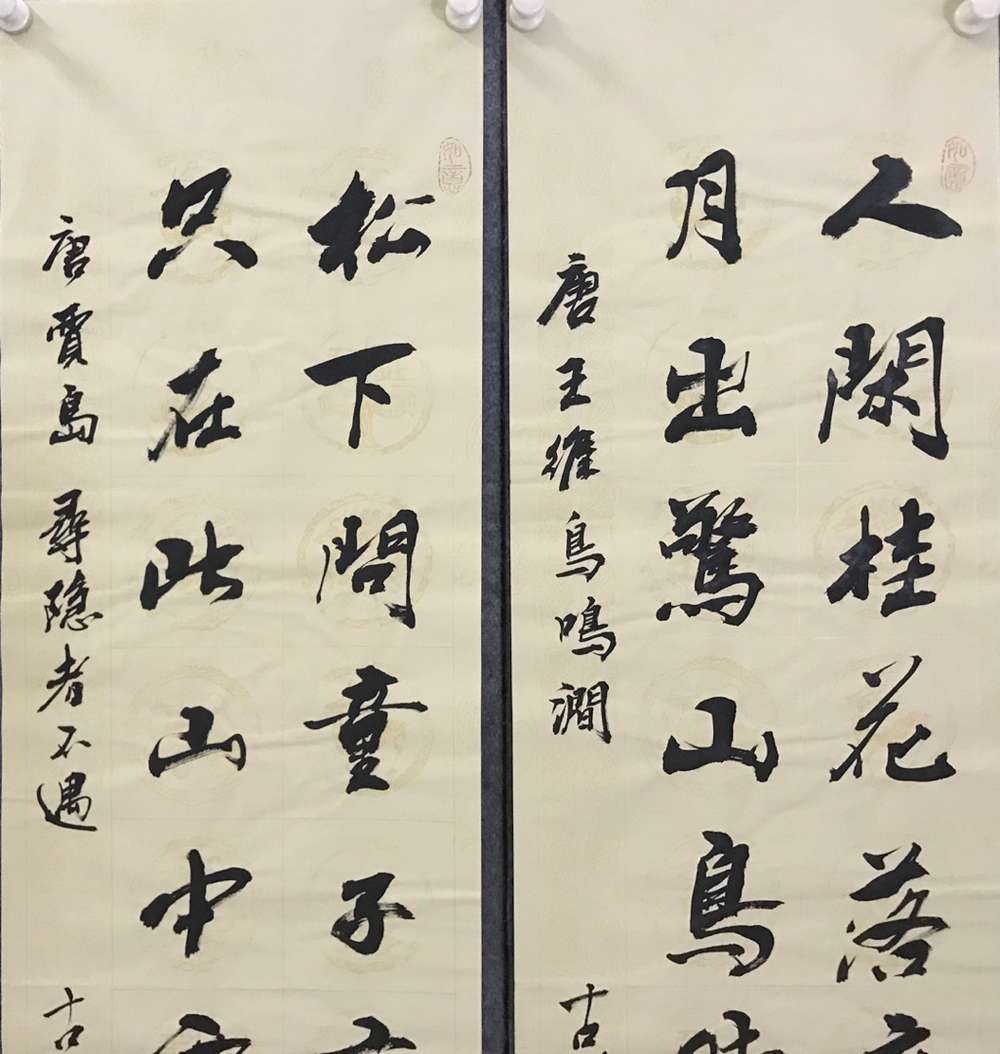 人閑桂花落
月出驚山鳥
唐王維鳥鳴澗
古
松下問童子
只在此山中
唐賈島 尋隐者不遇
古